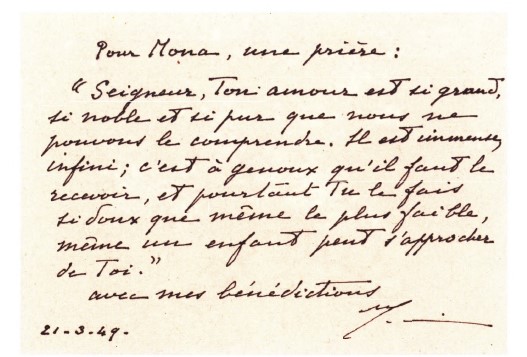 Pour Mona, une prière :
"Seigneur, Ton amour est si grand,
si noble et si pur que nous ne
pouvons le comprendre. Il est immense,
infini ; c'est à genoux qu'il faut le
recevoir, et pourtant Tu le fais
si doux que même le plus faible,
même un enfant peut s'approcher
de Toi."
avec mes bénédictions
21-3-49-